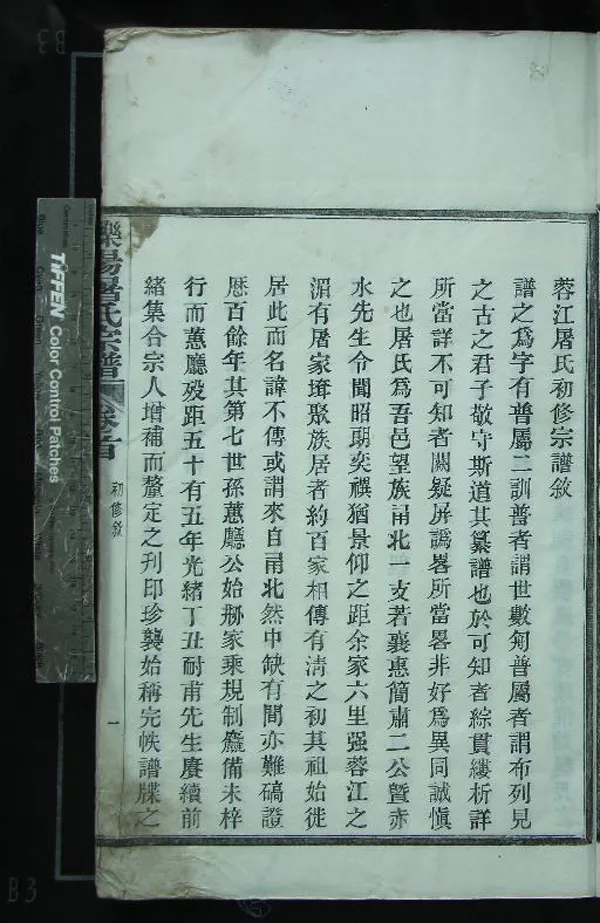 蓉江屠氏初修宗譜敘
譜之爲字有普屬二訓善者謂世數匊普屬者謂布列見
之古之君子敬守斯道其纂譜也於可知者綜貫縷析詳
所當詳不可知者闕疑屏譌畧所當畧非好爲異同誠愼
之也屠氏爲吾邑望族甬北一支若襄惠簡肅二公暨赤
水先生令聞昭朗奕禩猶景仰之距余家六里强蓉江之
湄有屠家塂聚族居者約百家相傳有淸之初其祖始徙
居此而名諱不傳或謂來自甬北然中缺有間亦難碻證
歴百餘年其第七世孫蕙廳公始刱家乘規制麤備未梓
行而蕙廳歿距五十有五年光緒丁丑耐甫先生賡續前
緒集合宗人增補而釐定之刋印珍襲始稱完帙譜牒之
陽屠氏宗譜
卷首
初修敘
一
TIFFEN Color Control Patches
B3
B3